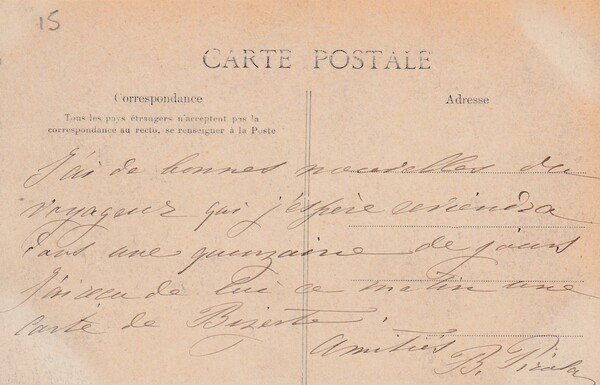 15
CARTE POSTALE
Correspondance
Adresse
Tous les pays étrangers n'acceptent pas la
correspondance au recto, se renseigner à la Poste
J'ai de bonnes nouvelles du
voyageur qui j'espère reviendra
dans une quinzaine de jours
J'ai reçu de lui ce matin une
Carte de Bizerte.
Amitiés B.